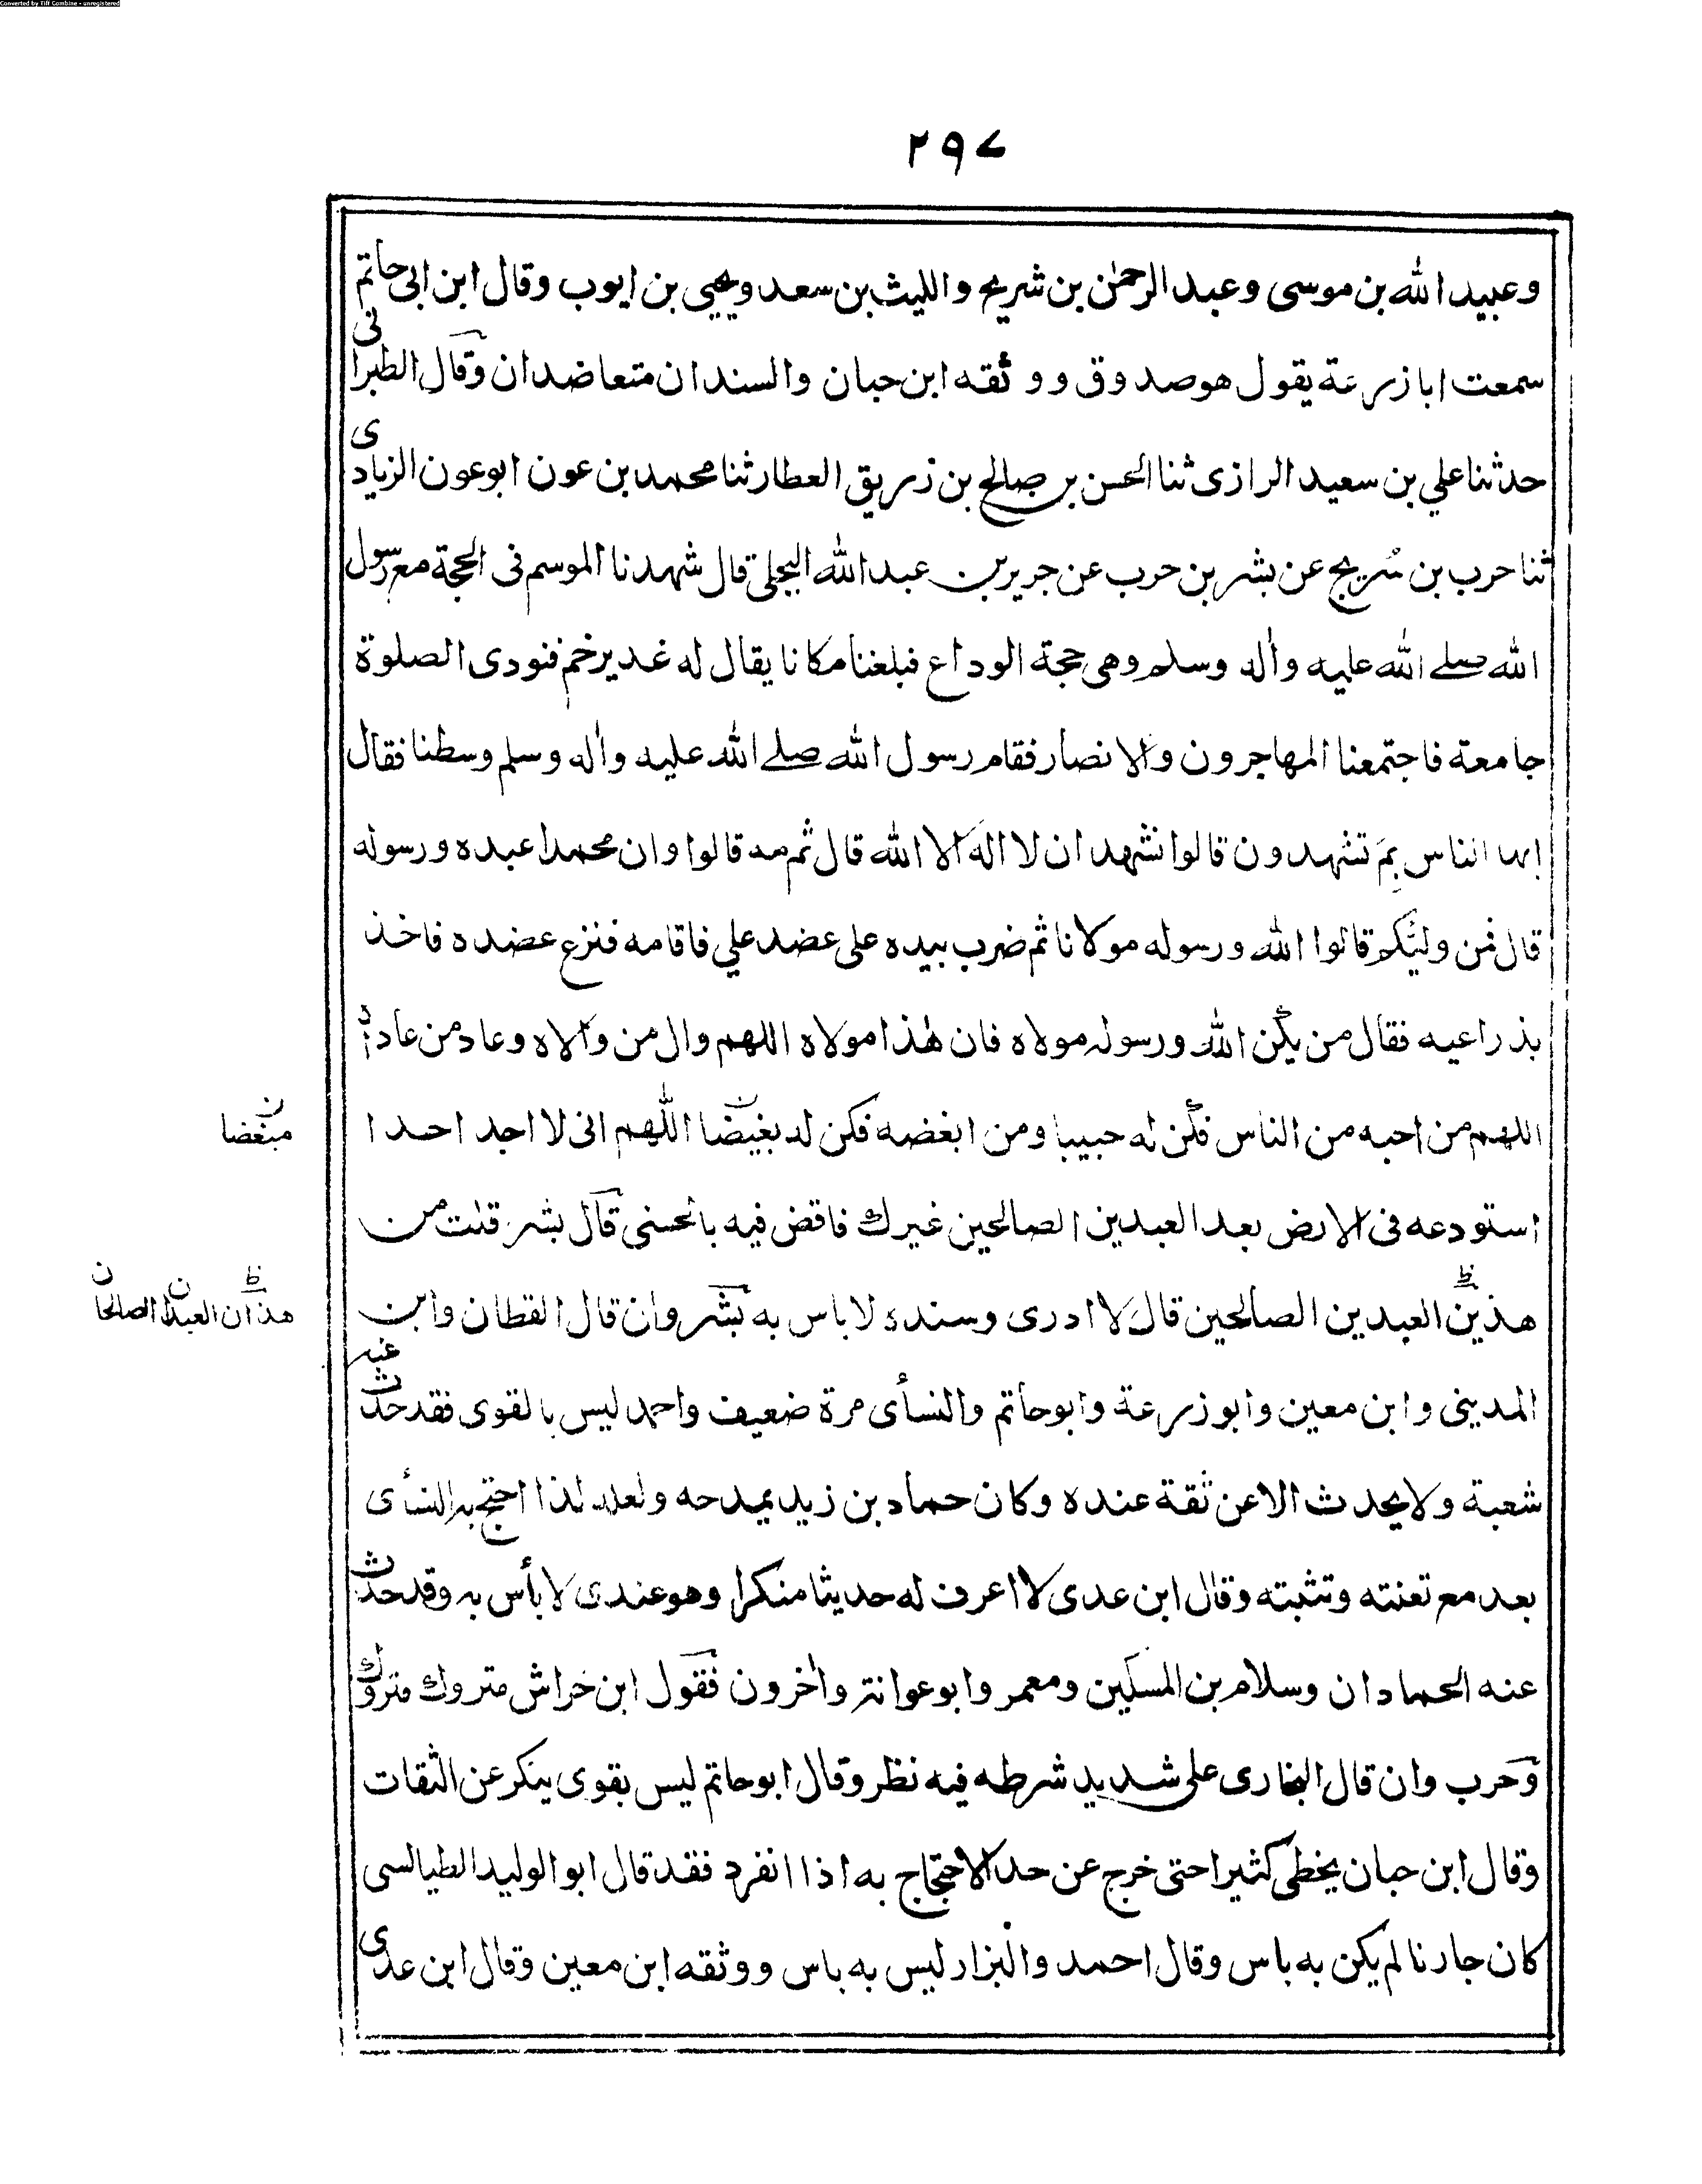 Converted by Tiff Combine - unregistered
٢٩٧
وعبيد الله بن موسى وعبد الرحمٰن بن شريح والليث بن سعد ويحيى بن ايوب وقال ابن ابى حاتم
سمعت ابا زرعة يقول هو صدوق ووثقه ابن حبان والسندان متعاضدان وقال الطبرانى
حدثنا علي بن سعيد الرازى ثنا الحسن بن صالح بن زريق العطار ثنا محمد بن عون ابو عون الزيادى
ثنا حرب بن سُريج عن بشر بن حرب عن جرير بن عبد الله البجلى قال شهدنا الموسم فى الحجة مع رسول
الله صلے الله عليه واٰله وسلم وهى حجة الوداع فبلغنا مكانا يقال له غدير خم فنودى الصلوة
جامعة فاجتمعنا المهاجرون والانصار فقام رسول الله صلے الله عليه واٰله وسلم وسطنا فقال
ايها الناس بِمَ تشهدون قالوا نشهد ان لا اله الا الله قال ثم مه قالوا وان محمدا عبده ورسوله
قال فمن وليّكم قالوا الله ورسوله مولانا ثم ضرب بيده على عضد علي فاقامه فنزع عضده فاخذ
بذراعيه فقال من يكن الله ورسوله مولاه فان هٰذا مولاه اللهم وال من والاه وعاد من عاداه
اللهم من احبه من الناس فكن له حبيبا ومن ابغضه فكن له بغيضا اللّٰهم انى لا اجد احدا
مبغضا ن
استودعه فى الارض بعد العبدين الصالحين غيرك فاقض فيه بالحسنى قال بشر قلت من
هذين العبدين الصالحين قال لا ادرى وسنده لا باس به بشر وان قال القطان وابن
هذان العبدان الصالحان
المدينى وابن معين وابو زرعة وابو حاتم والنسأى مرة ضعيف واحمد ليس بالقوى فقد حدث عنه
شعبة ولا يحدث الا عن ثقة عنده وكان حماد بن زيد يمدحه ولعله لذا احتج به النسأى
بعد مع تعنته وتثبته وقال ابن عدى لا اعرف له حديثا منكرا وهو عندى لا بأس به وقد حدث
عنه الحمادان وسلام بن المسكين ومعمر وابو عوانة واٰخرون فقول ابن خراش متروك متروك
وحرب وان قال البخارى على شديد شرطه فيه نظر وقال ابو حاتم ليس بقوى ينكر عن الثقات
وقال ابن حبان يخطى كثيرا حتى خرج عن حد الاحتجاج به اذا انفرد فقد قال ابو الوليد الطيالسى
كان جارنا لم يكن به باس وقال احمد والبزار ليس به باس ووثقه ابن معين وقال ابن عدى